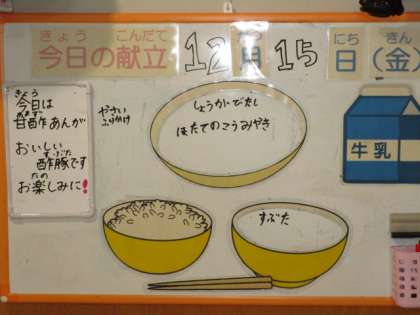 きょう こんだて がつ にち きん
今日の献立 12月15日(金)
きょう
今日は
あまず
甘酢あんが
おいしい
すぶた
酢豚です
たの
お楽しみに!
やさい
ふりかけ
ほたてのこうみやき
牛乳
すぶた